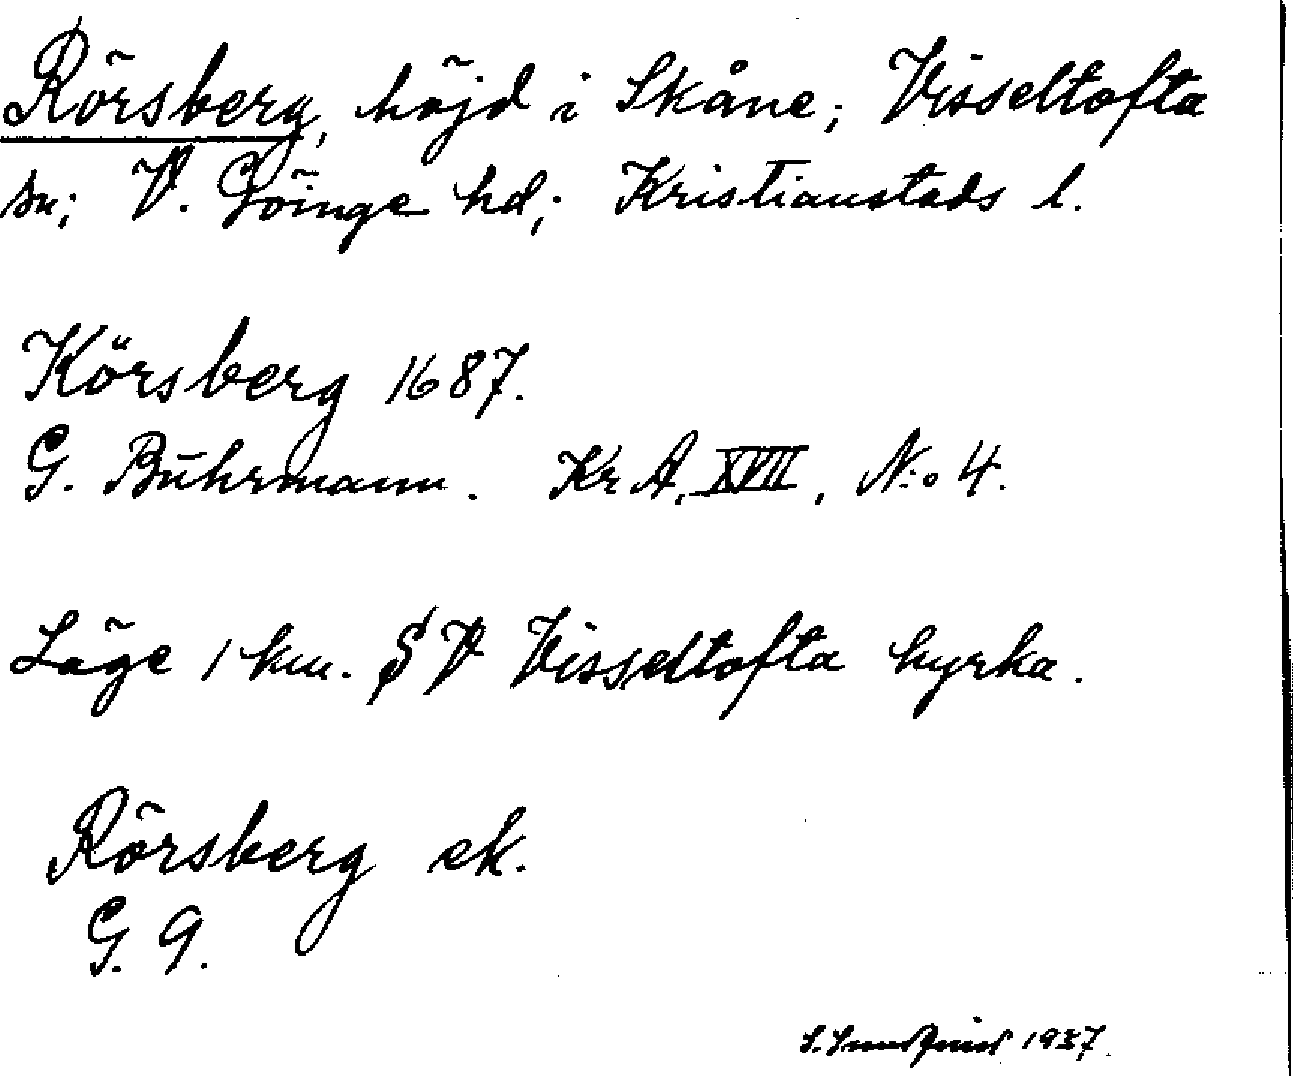 Rörsberg, höjd i Skåne; Visseltofta
sn; V. Göinge hd; Kristianstads l.
Körsberg 1687.
G. Buhrmann. Kr A, XVII, N:o 4.
Läge 1 km. SV Visseltofta kyrka.
Rörsberg ek.
G. 9.
1937